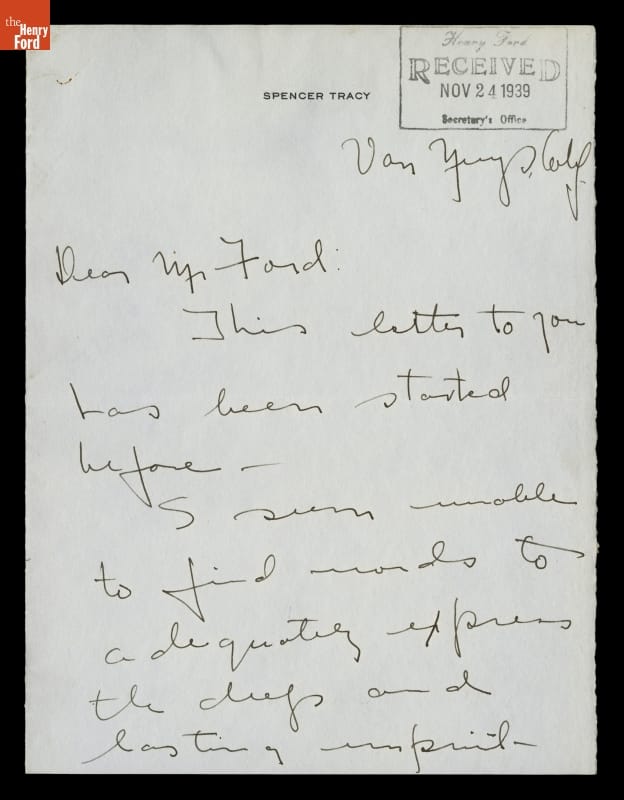 the
Henry
Ford
Henry Ford
RECEIVED
NOV 24 1939
Secretary's Office
SPENCER TRACY
Van Nuys, Calif.
Dear Mr. Ford:
This letter to you
has been started
before —
I seem unable
to find words to
adequately express
the deep and
lasting imprint